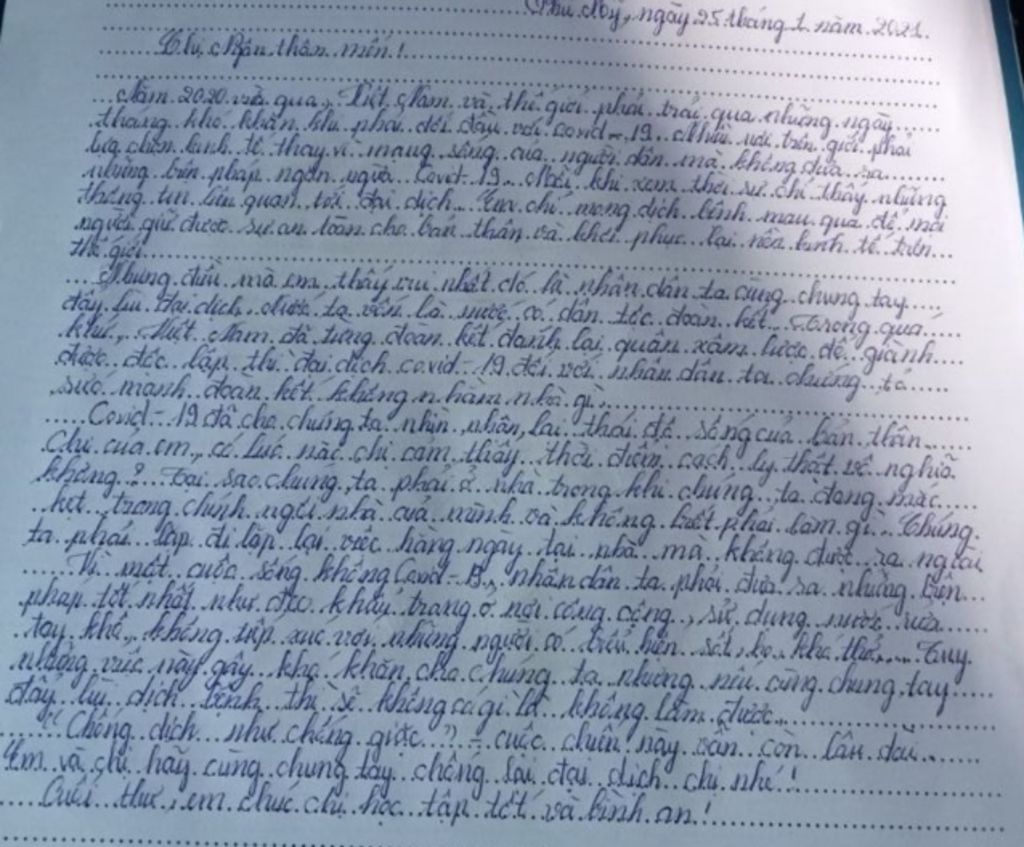 Phú Mỹ, ngày 25 tháng 1 năm 2021.
Chị Ngân thân mến!
Năm 2020 vừa qua, Việt Nam và thế giới phải trải qua những ngày
tháng khó khăn khi phải đối đầu với covid-19. Nhiều nơi trên giới phải
lựa chọn kinh tế thay vì mạng sống của người dân mà không đưa ra
những biện pháp ngăn ngừa Covid-19. Mỗi khi xem thời sự chỉ thấy những
thông tin liên quan tới đại dịch. Em chỉ mong dịch bệnh mau qua để mọi
người giữ được sự an toàn cho bản thân và khôi phục lại nền kinh tế trên
thế giới.
Nhưng điều mà em thấy vui nhất đó là nhân dân ta cùng chung tay
đẩy lùi đại dịch. Nước ta vốn là nước có dân tộc đoàn kết. Trong quá
khứ, Việt Nam đã từng đoàn kết đánh lại quân xâm lược để giành
được độc lập thì đại dịch covid-19 đối với nhân dân ta chứng tỏ
sức mạnh đoàn kết không nhằm nhò gì.
Covid-19 đã cho chúng ta nhìn nhận lại thái độ sống của bản thân.
Chị của em, có lúc nào chị cảm thấy thời điểm cách ly thật vô nghĩa
không? Tại sao chúng ta phải ở nhà trong khi chúng ta đang mắc
kẹt trong chính ngôi nhà của mình và không biết phải làm gì. Chúng
ta phải lặp đi lặp lại việc hàng ngày tại nhà mà không được ra ngoài
Vì một cuộc sống không Covid-19, nhân dân ta phải đưa ra những biện
pháp tốt nhất như đeo khẩu trang ở nơi công cộng, sử dụng nước rửa
tay khô, không tiếp xúc với những người có biểu hiện sốt, ho, khó thở,... Tuy
những việc này gây khó khăn cho chúng ta nhưng nếu cùng chung tay
đẩy lùi dịch bệnh thì sẽ không có gì là không làm được.
"Chống dịch như chống giặc" - cuộc chiến này vẫn còn lâu dài.
Em và chị hãy cùng chung tay chống lại đại dịch chị nhé!
Cuối thư, em chúc chị học tập tốt và bình an!